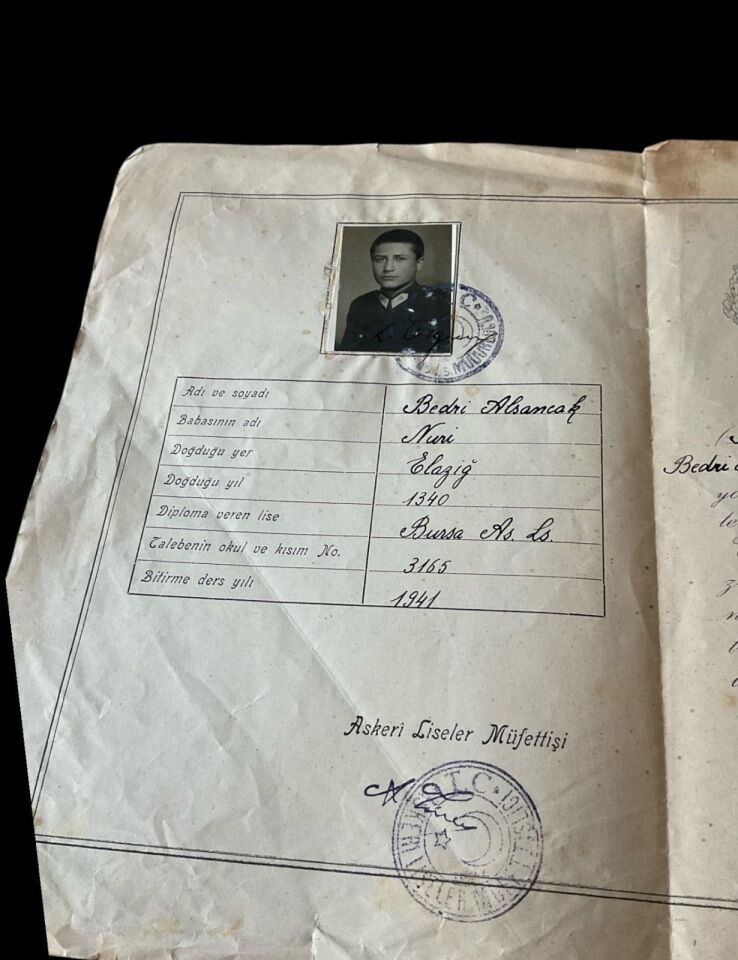 Adı ve soyadı Bedri Alsancak
Babasının adı Nuri
Doğduğu yer Elazığ
Doğduğu yıl 1340
Diploma veren lise Bursa As. Ls.
Talebenin okul ve kısım No. 3165
Bitirme ders yılı 1941
Bedri
Askerî Liseler Müfettişi
T.C.